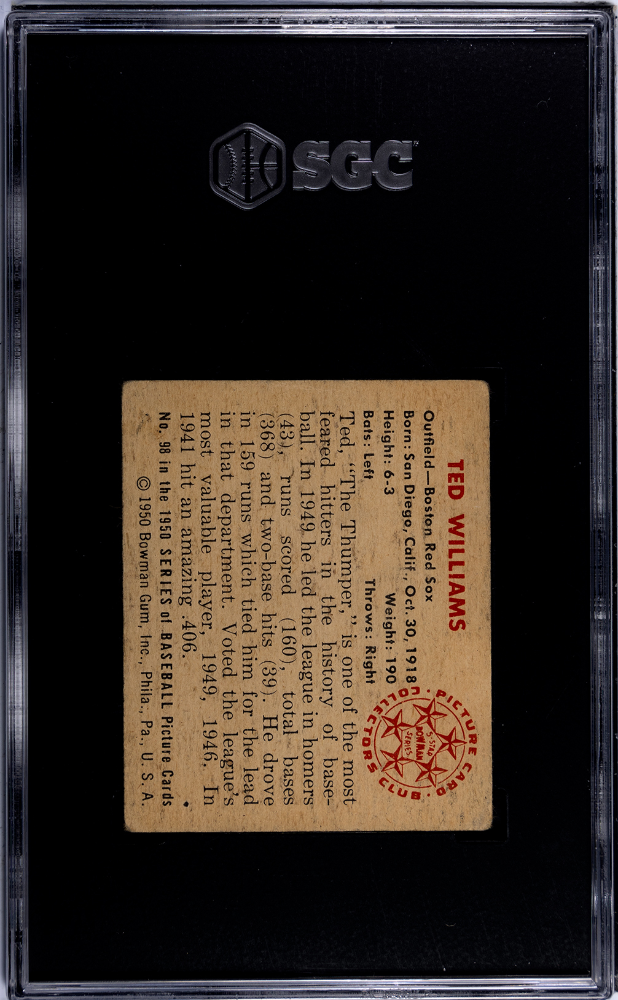 SGC
TED WILLIAMS
Outfield—Boston Red Sox
Born: San Diego, Calif., Oct. 30, 1918
Height: 6-3 Weight: 190
Bats: Left Throws: Right
PICTURE CARD COLLECTORS CLUB
5-STAR
BOWMAN
SERIES
Ted, "The Thumper," is one of the most
feared hitters in the history of base-
ball. In 1949 he led the league in homers
(43), runs scored (160), total bases
(368) and two-base hits (39). He drove
in 159 runs which tied him for the lead
in that department. Voted the league's
most valuable player, 1949, 1946. In
1941 hit an amazing .406.
No. 98 in the 1950 SERIES of BASEBALL Picture Cards
© 1950 Bowman Gum, Inc., Phila., Pa., U. S. A.